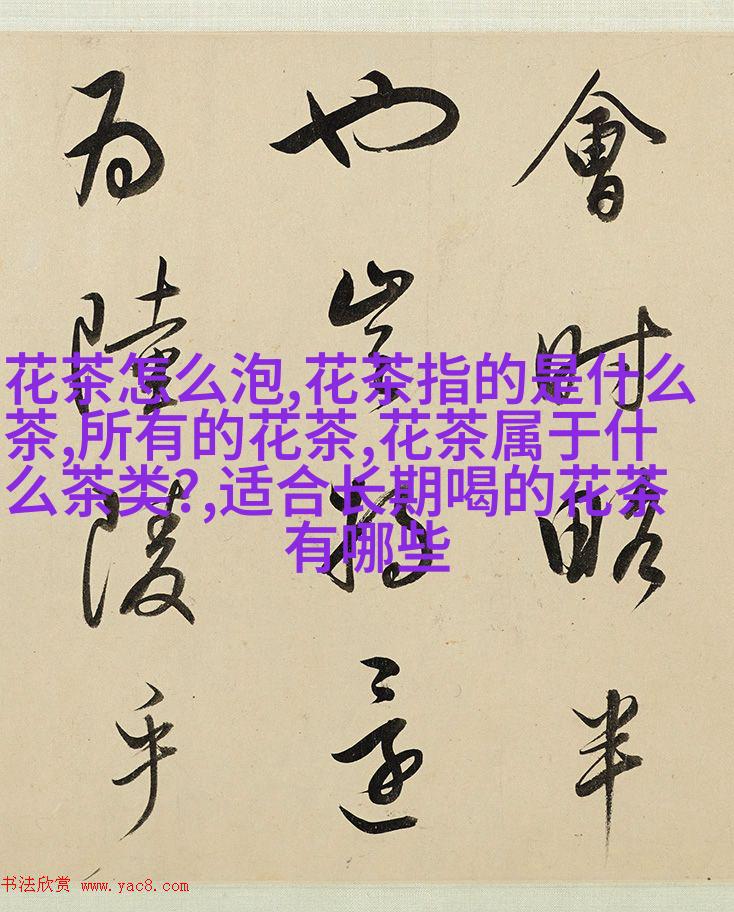 會
時
略
半
也
豈
特
為
陵
乎
花茶怎么泡,花茶指的是什么
茶,所有的花茶,花茶属于什
么茶类?,适合长期喝的花茶
有哪些
书法欣赏 www.yac8.com